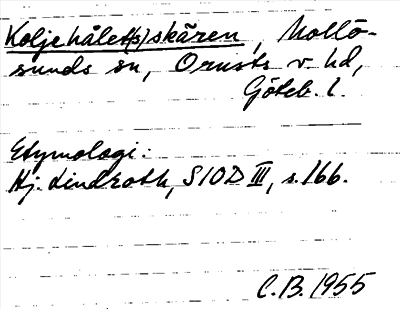 Koljehålet(s)skären, Mollö-
sunds sn, Orusts v. hd,
Göteb. l.
Etymologi:
Hj. Lindroth, SIOD III, s. 166.
C.B. 1955